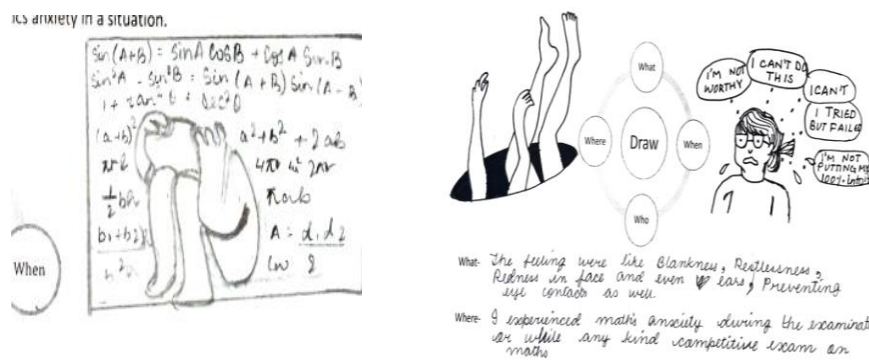 ics anxiety in a situation.
sin (A+B) = sinA cosB + cos A sin B
sin²A - sin²B = sin (A + B) sin (A - B)
1 + tan² θ = sec² θ
(a+b)² a²+b² + 2ab
πr l 4πr² 2πr
1/2 bh πab
b1+b2) A = d1 d2
2
When
What
Where
Draw
When
Who
I'M NOT WORTHY
I CAN'T DO THIS
I CAN'T
I TRIED BUT FAILED
I'M NOT PUTTING MY 100%
What- The feeling were like Blankness, Restlessness,
Redness in face and even ears, Preventing
eye contacts as well
Where- I experienced maths anxiety during the examinat
or while any kind competitive exam on
maths